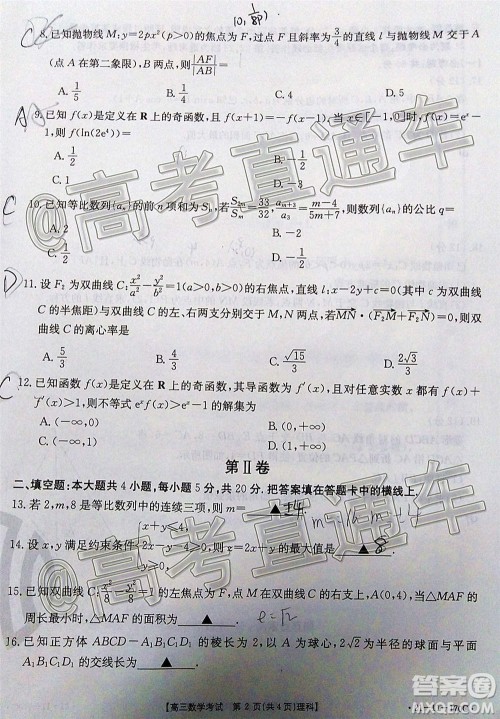 (0, 1/8p)
C 8.已知抛物线 M:y=2px²(p>0)的焦点为 F,过点 F 且斜率为 3/4 的直线 l 与抛物线 M 交于 A
(点 A 在第二象限),B 两点,则 |AF|/|AB| =
A. 1/5 B. 1/4 C. 4 D. 5
A 9.已知 f(x)是定义在 R 上的奇函数,且 f(x+1)=-f(x-1),当 x∈[-1,0]时,f(x)=eˣ-
1,则 f(ln(2e⁴))=
A. 1/2 B. -1/2 C. D. -1
C 10.已知等比数列{aₙ}的前 n 项和为 Sₙ,若 =33/32, =(m-4)/(5m+7),则数列{aₙ}的公比 q=
A. 2 B. -2 C. 1/2 D. -1/2
D 11.设 F₂ 为双曲线 C:x²/a²-y²/b²=1(a>0,b>0)的右焦点,直线 l:x-2y+c=0(其中 c 为双曲线
C 的半焦距)与双曲线 C 的左、右两支分别交于 M,N 两点,若 MN·(F₂M+F₂N)=0,则双曲
线 C 的离心率是
A. 5/3 B. 4/3 C. √15/3 D. 2√3/3
C 12.已知函数 f(x)是定义在 R 上的奇函数,其导函数为 f′(x),且对任意实数 x 都有 f(x)+
f′(x)>1,则不等式 eˣf(x)>eˣ-1 的解集为
A.(-∞,0) B.(-∞,1) C.(0,+∞) D.(1,+∞)
第Ⅱ卷
二、填空题:本大题共 4 小题,每小题 5 分,共 20 分.把答案填在答题卡中的横线上.
13.若 2,m,8 是等比数列中的连续三项,则 m= ▲ ±4.
14.设 x,y 满足约束条件 x+y≤4, 2x-y≤0, 则 z= 的最大值是 ▲ 8.
15.已知双曲线 C:x²/8-y²/8=1 的左焦点为 F,点 M 在双曲线 C 的右支上,A(0,4),当△MAF 的
周长最小时,△MAF 的面积为 ▲ . e=√2
16.已知正方体 ABCD-A₁B₁C₁D₁ 的棱长为 2,以 A 为球心,2√2 为半径的球面与平面
AB₁C₁D 的交线长为 ▲ .
【高三数学考试 第 2 页(共 4 页)理科】
@高考直通车
@高考直通车